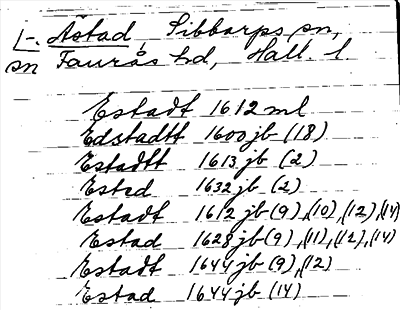 L-. Åstad, Sibbarps sn,
sn Faurås hd, Hall. l
Estadt 1612 ml
Edstadtt 1600 jb (18)
Estadtt 1613 jb (2)
Estad 1632 jb (2)
Estadt 1612 jb (9), (10), (12), (14)
Estad 1628 jb (9), (11), (12), (14)
Estadt 1644 jb (9), (12)
Estad 1644 jb (14)